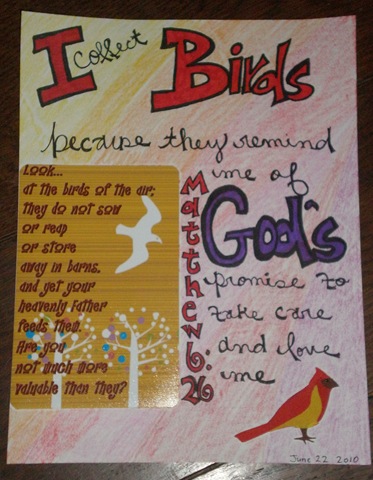 I collect Birds
because they remind
me of
God's
promise to
take care
and love
me
Look...
at the birds of the air;
they do not sow
or reap
or store
away in barns,
and yet your
heavenly Father
feeds them.
Are you
not much more
valuable than they?
Matthew 6:26
June 22 2010